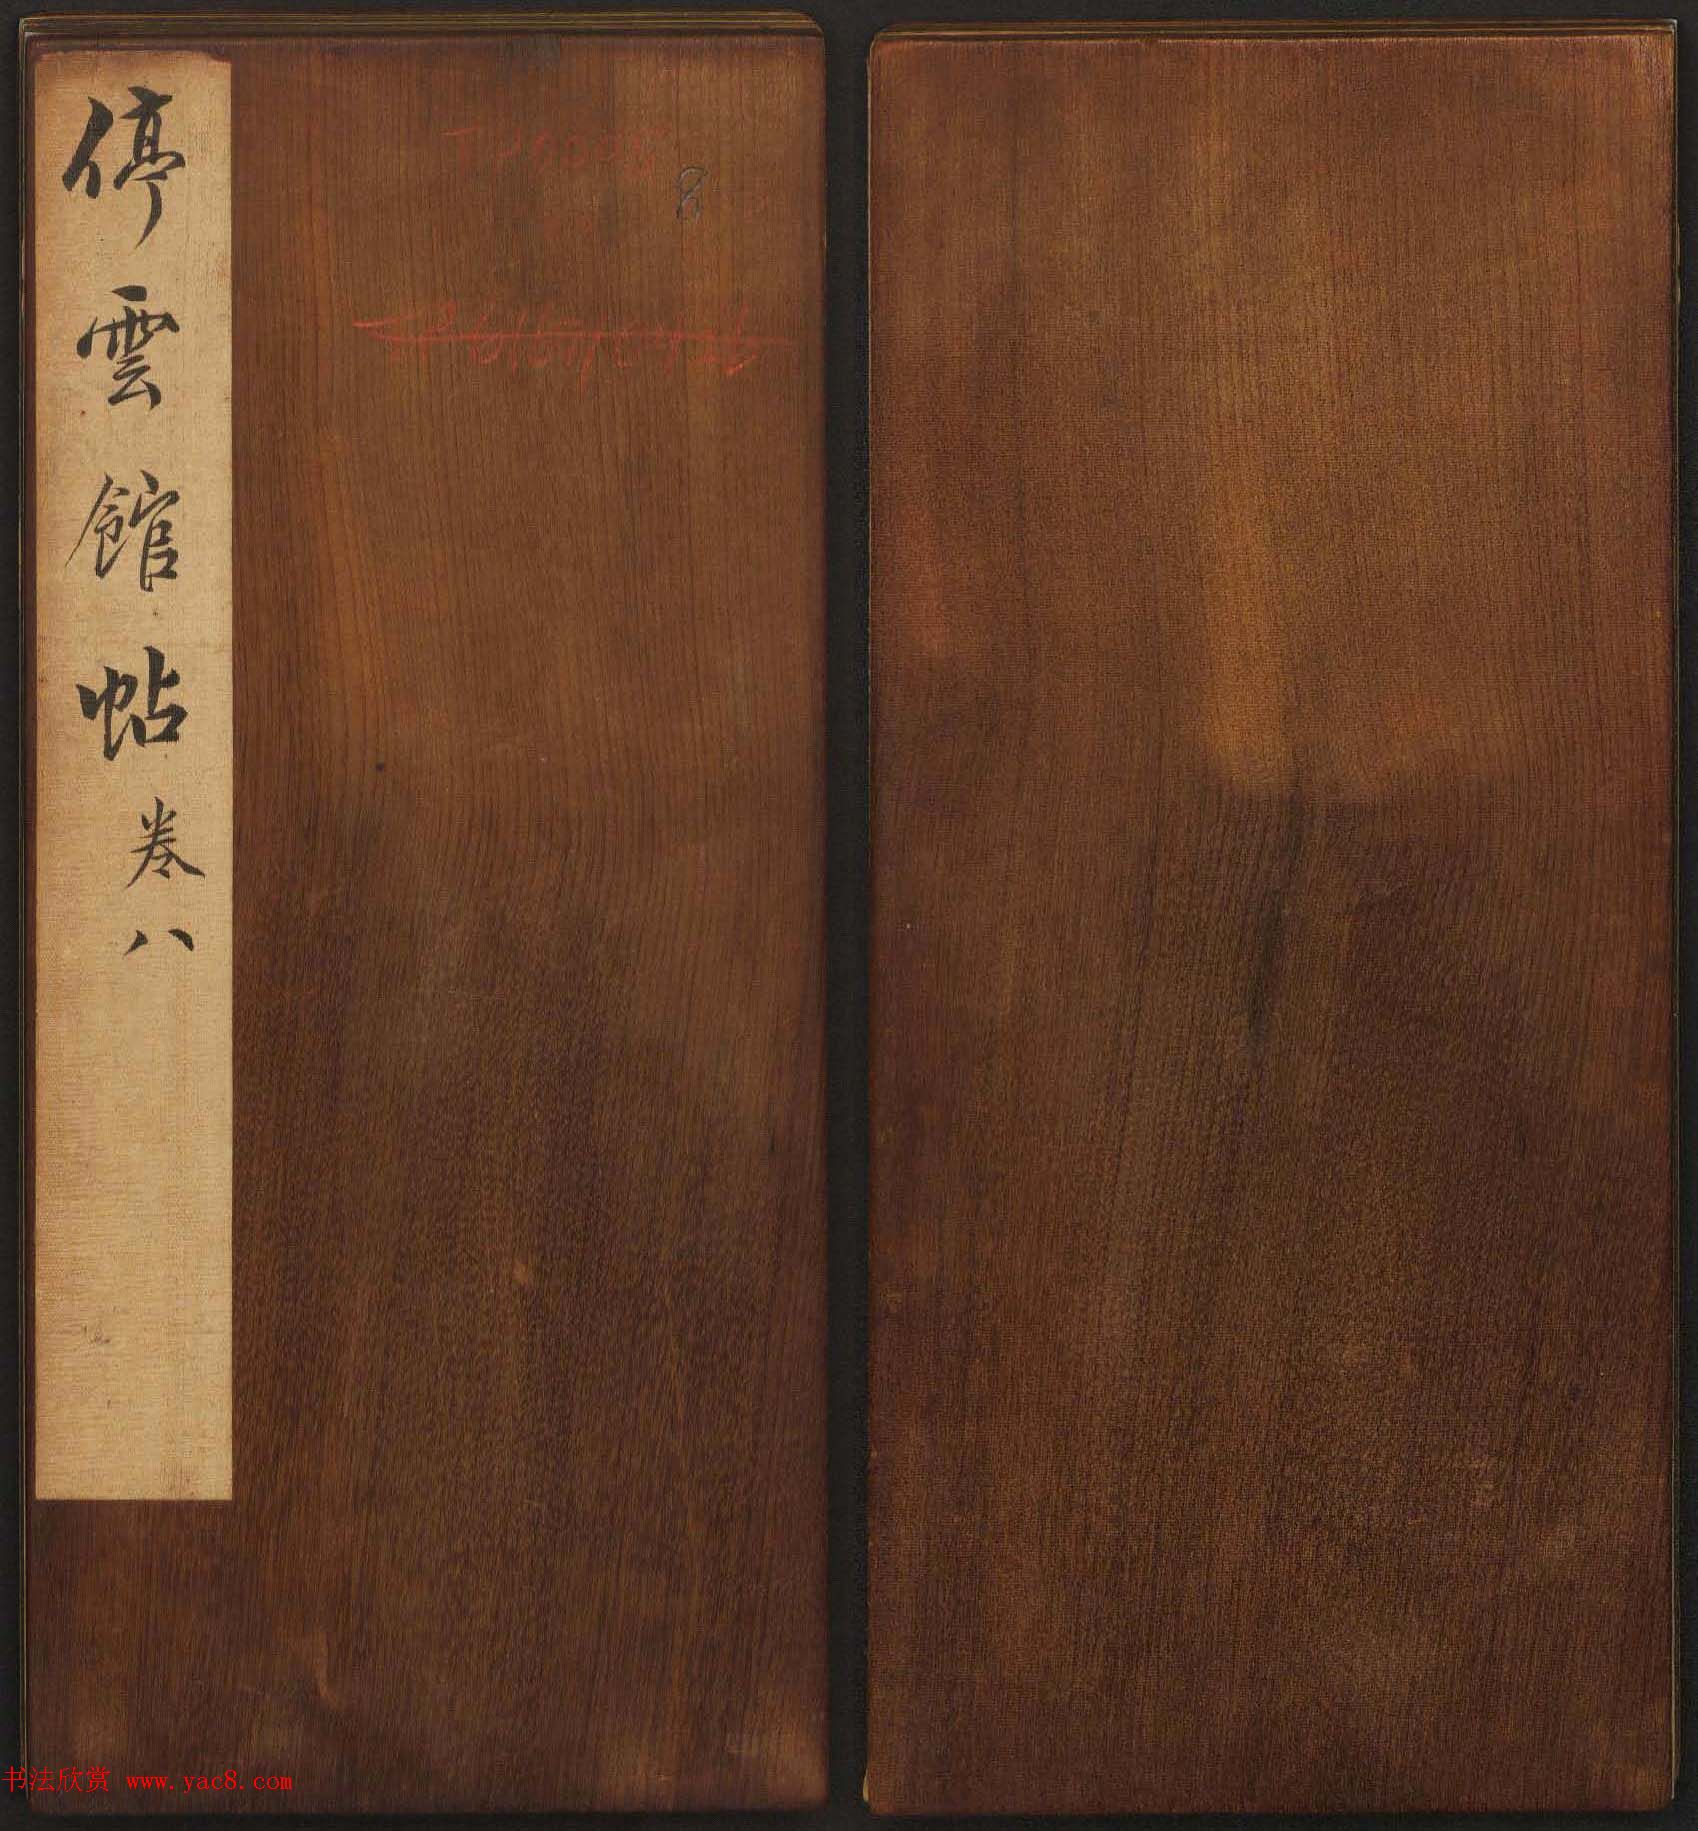 停雲館帖卷八
8
书法欣赏 www.yac8.com